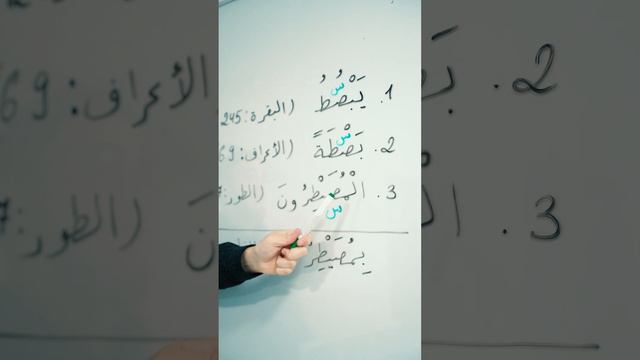 1. يَبْصُۜطُ (البقرة: 245
2. بَصْۜطَةً (الأعراف: 69
3. الْمُصَۣيْطِرُونَ (الطور:
بِمُصَيْطِرٍ